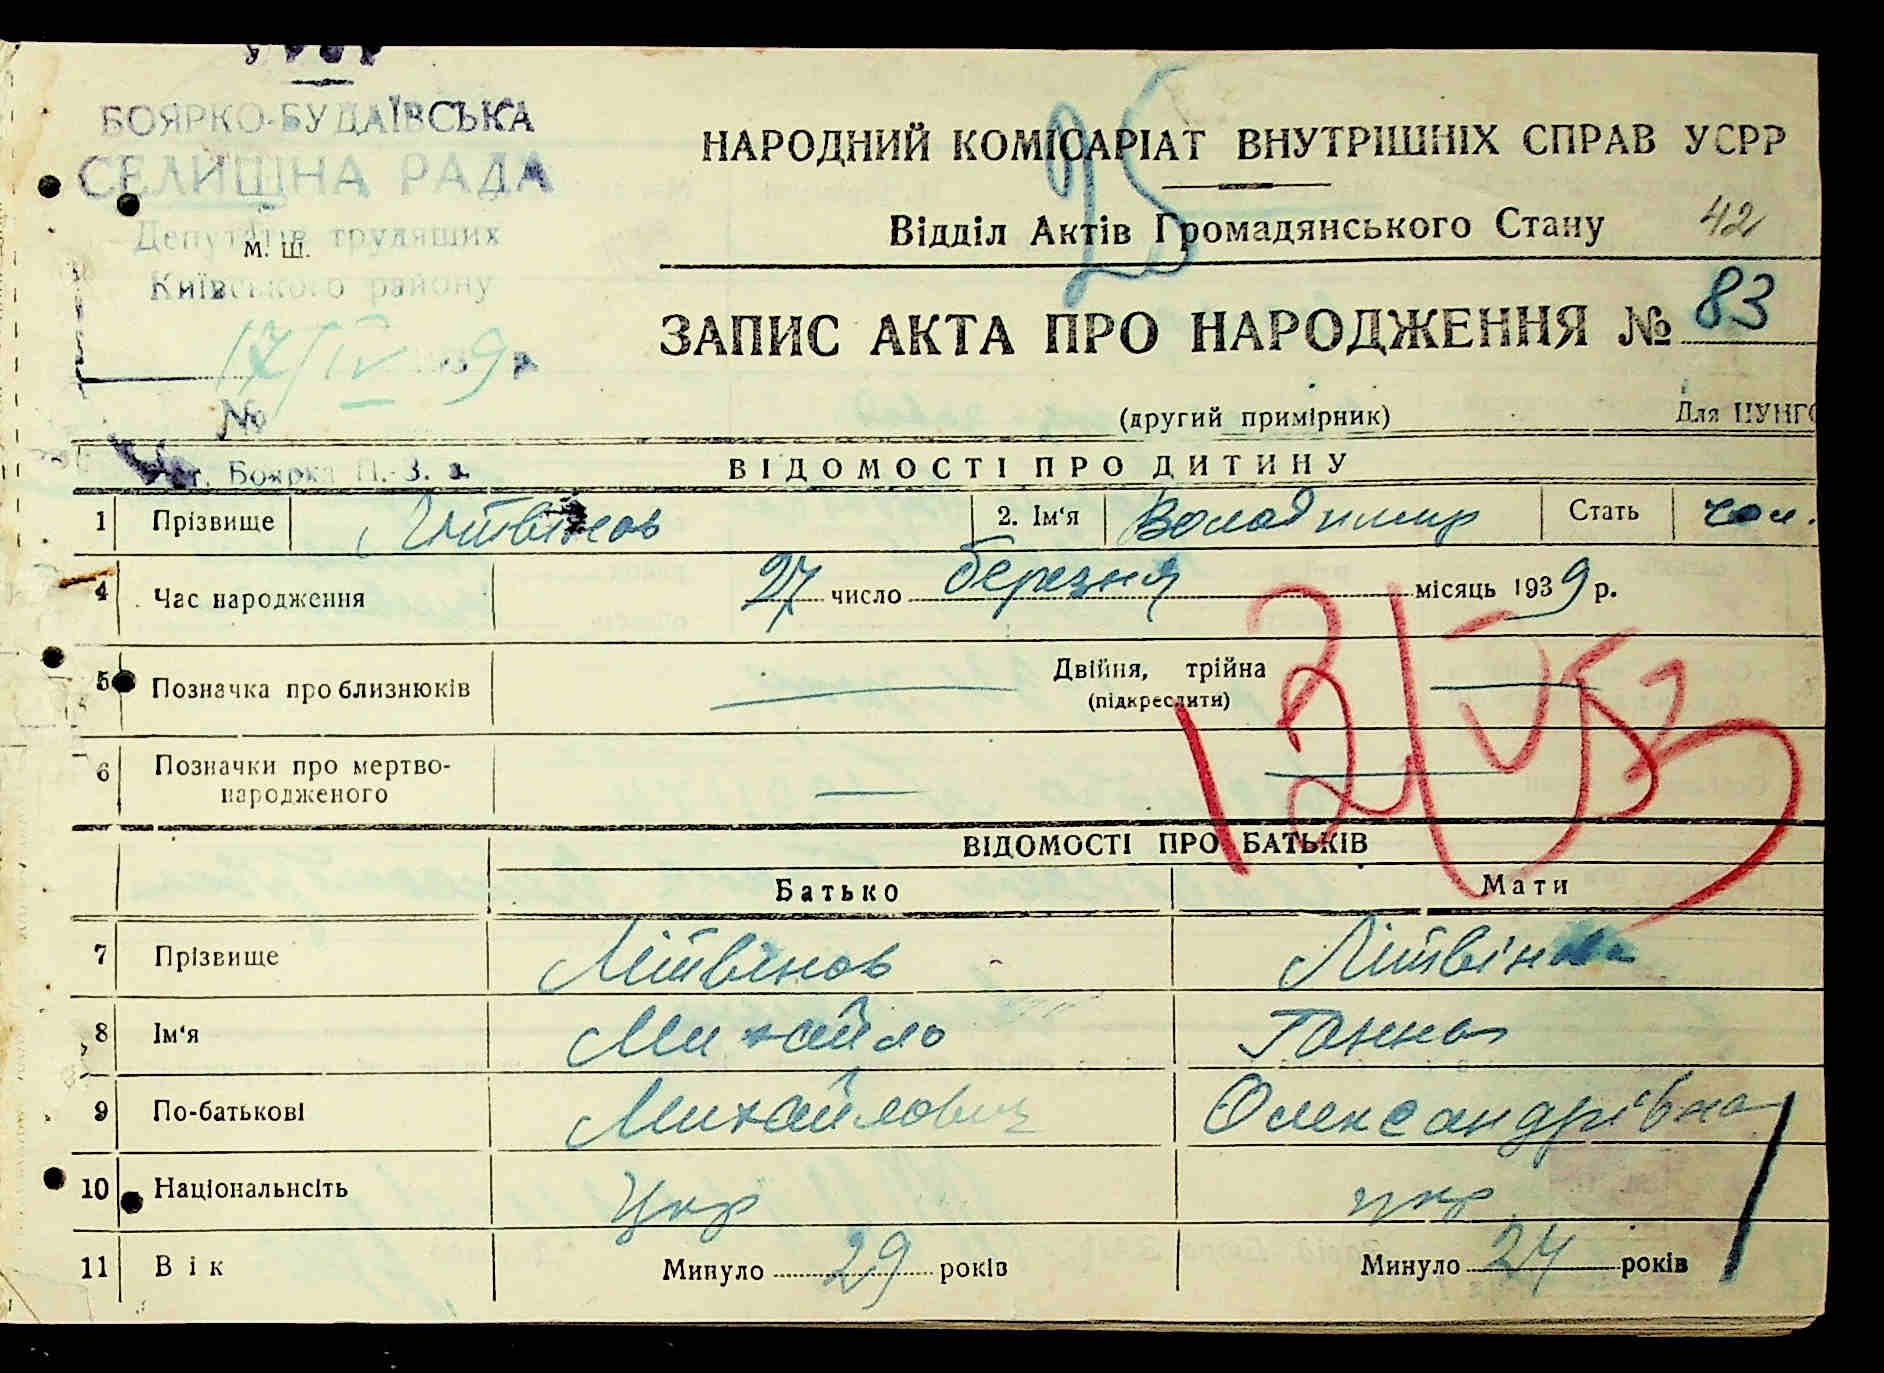 УРСР
БОЯРКО-БУДАЇВСЬКА
СЕЛИЩНА РАДА
Депутатів трудящих
м. Ш.
Київського району
17/IV 1939 р.
№
ст. Боярка П.-З. з.
НАРОДНИЙ КОМІСАРІАТ ВНУТРІШНІХ СПРАВ УСРР
25
Відділ Актів Громадянського Стану 42
ЗАПИС АКТА ПРО НАРОДЖЕННЯ № 83
(другий примірник) Для ЦУНГО
ВІДОМОСТІ ПРО ДИТИНУ
1 Прізвище Літвінов 2. Ім‘я Володимир Стать чол.
4 Час народження 27 число березня місяць 1939 р.
5 Позначка про близнюків — Двійня, трійна —
(підкреслити)
6 Позначки про мертво-
народженого — —
ВІДОМОСТІ ПРО БАТЬКІВ
Батько Мати
7 Прізвище Літвінов Літвінова
8 Ім‘я Михайло Ганна
9 По-батькові Михайлович Олександрівна
10 Національнсіть Укр укр
11 Вік Минуло 29 років Минуло 24 років